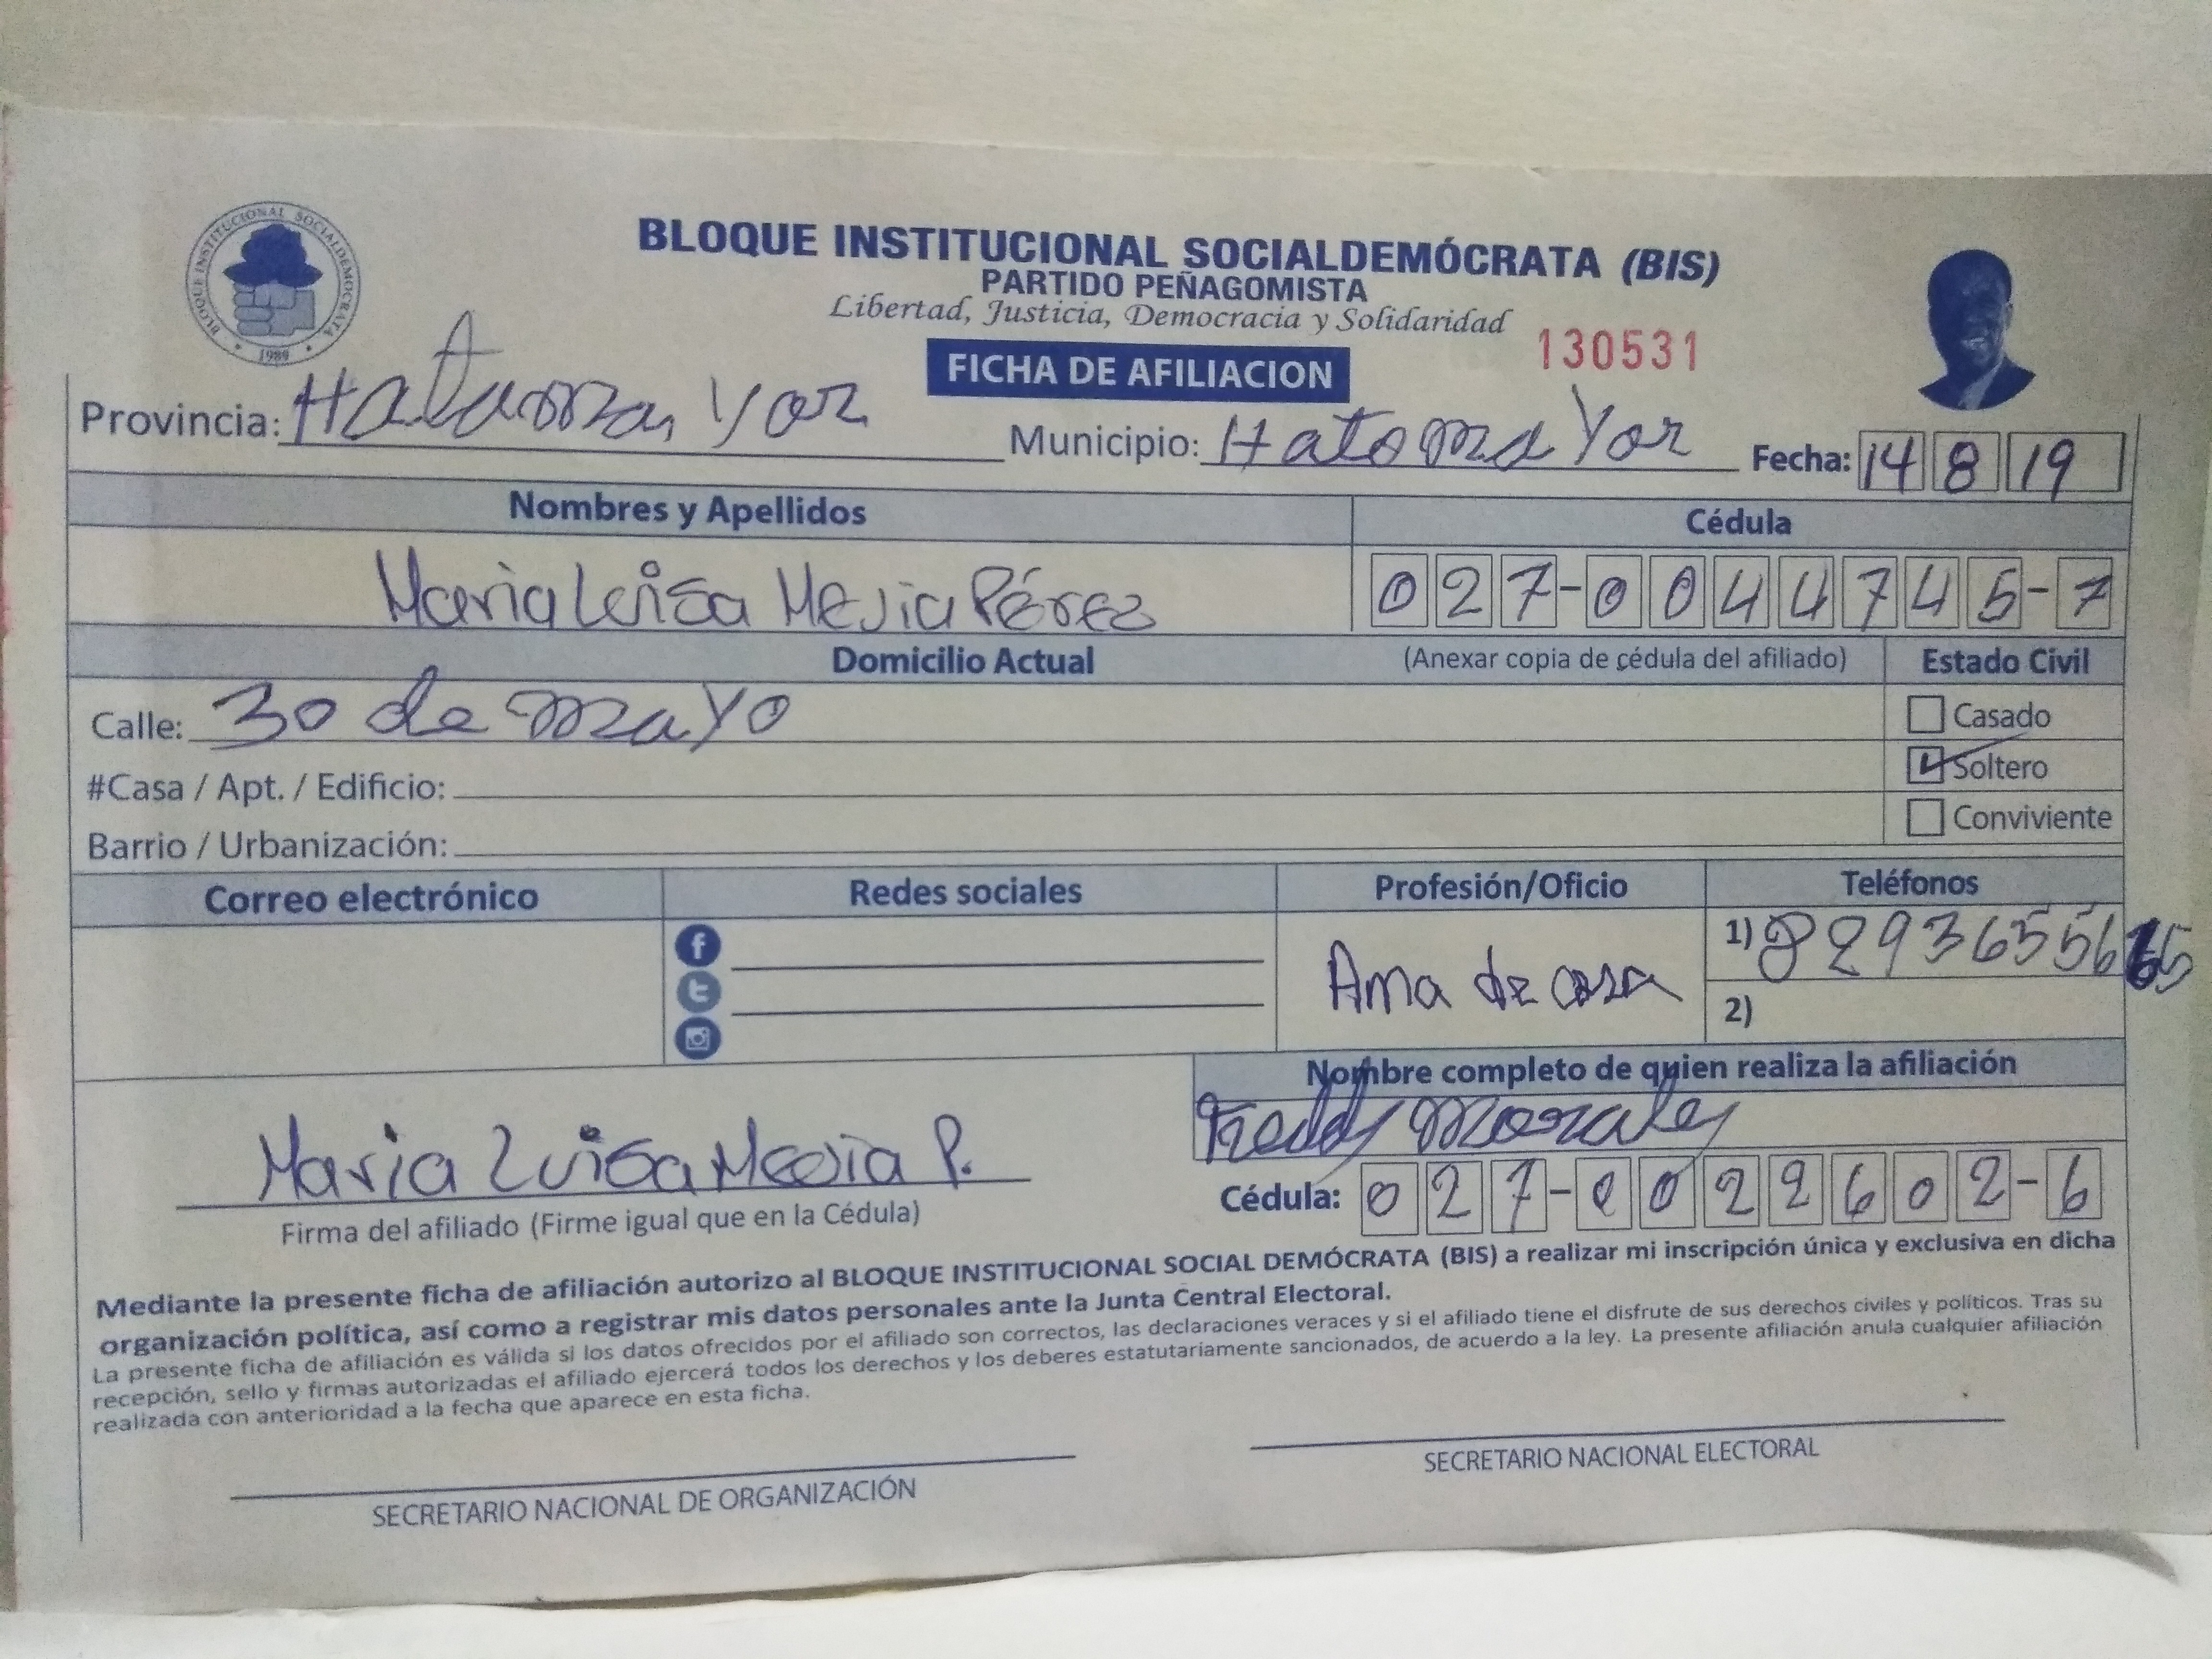 BLOQUE INSTITUCIONAL SOCIALDEMOCRATA
1989
BLOQUE INSTITUCIONAL SOCIALDEMÓCRATA (BIS)
PARTIDO PEÑAGOMISTA
Libertad, Justicia, Democracia y Solidaridad
130531
FICHA DE AFILIACION
Provincia: Hatoma, Yor Municipio: Hatoma Yor Fecha: 14 8 19
Nombres y Apellidos Cédula
Maria Luisa Mejia Pérez 027-0044745-7
Domicilio Actual (Anexar copia de cédula del afiliado) Estado Civil
Calle: 30 de mayo Casado
#Casa / Apt. / Edificio: Soltero
Barrio / Urbanización: Conviviente
Correo electrónico Redes sociales Profesión/Oficio Teléfonos
Ama de casa 1) 82936556
2)
Nombre completo de quien realiza la afiliación
Freddy Morales
Maria Luisa Mejia P.
Cédula: 027-0022602-6
Firma del afiliado (Firme igual que en la Cédula)
Mediante la presente ficha de afiliación autorizo al BLOQUE INSTITUCIONAL SOCIAL DEMÓCRATA (BIS) a realizar mi inscripción única y exclusiva en dicha
organización política, así como a registrar mis datos personales ante la Junta Central Electoral.
La presente ficha de afiliación es válida si los datos ofrecidos por el afiliado son correctos, las declaraciones veraces y si el afiliado tiene el disfrute de sus derechos civiles y políticos. Tras su
recepción, sello y firmas autorizadas el afiliado ejercerá todos los derechos y los deberes estatutariamente sancionados, de acuerdo a la ley. La presente afiliación anula cualquier afiliación
realizada con anterioridad a la fecha que aparece en esta ficha.
SECRETARIO NACIONAL DE ORGANIZACIÓN SECRETARIO NACIONAL ELECTORAL